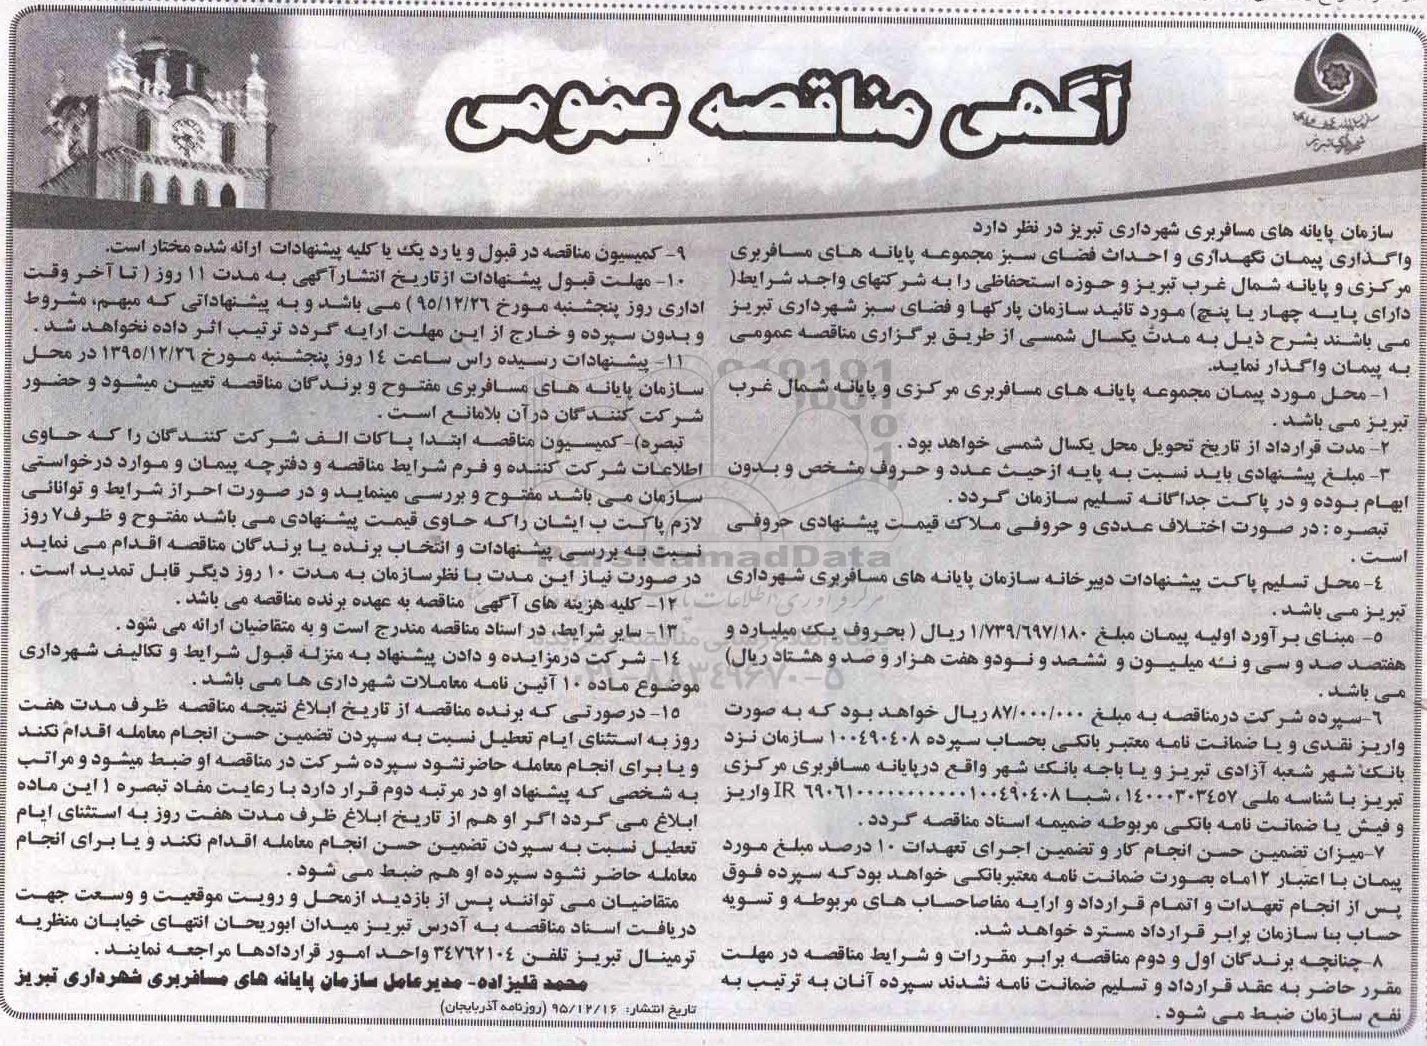 آگهی مناقصه عمومی
سازمان پایانه های مسافربری شهرداری تبریز در نظر دارد
واگذاری پیمان نگهداری و احداث فضای سبز مجموعه پایانه های مسافربری
مرکزی و پایانه شمال غرب تبریز و حوزه استحفاظی را به شرکتهای واجد شرایط(
دارای پایه چهار یا پنج) مورد تائید سازمان پارکها و فضای سبز شهرداری تبریز
می باشند بشرح ذیل به مدت یکسال شمسی از طریق برگزاری مناقصه عمومی
به پیمان واگذار نماید.
۱- محل مورد پیمان مجموعه پایانه های مسافربری مرکزی و پایانه شمال غرب
تبریز می باشد .
۲- مدت قرارداد از تاریخ تحویل محل یکسال شمسی خواهد بود .
۳- مبلغ پیشنهادی باید نسبت به پایه ازحیث عدد و حروف مشخص و بدون
ابهام بوده و در پاکت جداگانه تسلیم سازمان گردد .
تبصره : در صورت اختلاف عددی و حروفی ملاک قیمت پیشنهادی حروفی
است .
۴- محل تسلیم پاکت پیشنهادات دبیرخانه سازمان پایانه های مسافربری شهرداری
تبریز می باشد .
۵- مبنای برآورد اولیه پیمان مبلغ ۱/۷۳۹/۶۹۷/۱۸۰ ریال ( بحروف یک میلیارد و
هفتصد صد و سی و نه میلیون و ششصد و نودو هفت هزار و صد و هشتاد ریال)
می باشد .
۶-سپرده شرکت درمناقصه به مبلغ ۸۷/۰۰۰/۰۰۰ ریال خواهد بود که به صورت
واریز نقدی و یا ضمانت نامه معتبر بانکی بحساب سپرده ۱۰۰٤۹۰٤۰۸ سازمان نزد
بانک شهر شعبه آزادی تبریز و یا باجه بانک شهر واقع درپایانه مسافربری مرکزی
تبریز با شناسه ملی ۱٤۰۰۰۳۰۳٤۵۷ ، شبا IR واریز
و فیش یا ضمانت نامه بانکی مربوطه ضمیمه اسناد مناقصه گردد .
۷-میزان تضمین حسن انجام کار و تضمین اجرای تعهدات ۱۰ درصد مبلغ مورد
پیمان با اعتبار ۱۲ماه بصورت ضمانت نامه معتبربانکی خواهد بودکه سپرده فوق
پس از انجام تعهدات و اتمام قرارداد و ارایه مفاصاحساب های مربوطه و تسویه
حساب بنا سازمان برابر قرارداد مسترد خواهد شد.
۸-چنانچه برندگان اول و دوم مناقصه برابر مقررات و شرایط مناقصه در مهلت
مقرر حاضر به عقد قرارداد و تسلیم ضمانت نامه نشدند سپرده آنان به ترتیب به
نفع سازمان ضبط می شود .
۹- کمیسیون مناقصه در قبول و یا رد یک یا کلیه پیشنهادات ارائه شده مختار است.
۱۰- مهلت قبول پیشنهادات ازتاریخ انتشارآگهی به مدت ۱۱ روز ( تا آخر وقت
اداری روز پنجشنبه مورخ ۹۵/۱۲/۲۶ ) می باشد و به پیشنهاداتی که مبهم، مشروط
و بدون سپرده و خارج از این مهلت ارایه گردد ترتیب اثر داده نخواهد شد .
۱۱- پیشنهادات رسیده راس ساعت ۱٤ روز پنجشنبه مورخ ۱۳۹۵/۱۲/۲۶ در محل
سازمان پایانه های مسافربری مفتوح و برندگان مناقصه تعیین میشود و حضور
شرکت کنندگان درآن بلامانع است .
تبصره)-کمیسیون مناقصه ابتدا پاکات الف شرکت کنندگان را که حاوی
اطلاعات شرکت کننده و فرم شرایط مناقصه و دفترچه پیمان و موارد درخواستی
سازمان می باشد مفتوح و بررسی مینماید و در صورت احراز شرایط و توانائی
لازم پاکت ب ایشان راکه حاوی قیمت پیشنهادی می باشد مفتوح و ظرف۷ روز
نسبت به بررسی پیشنهادات و انتخاب برنده یا برندگان مناقصه اقدام می نماید
در صورت نیاز این مدت با نظرسازمان به مدت ۱۰ روز دیگر قابل تمدید است .
۱۲- کلیه هزینه های آگهی مناقصه به عهده برنده مناقصه می باشد .
۱۳- سایر شرایط، در اسناد مناقصه مندرج است و به متقاضیان ارائه می شود .
۱٤- شرکت درمزایده و دادن پیشنهاد به منزله قبول شرایط و تکالیف شهرداری
موضوع ماده ۱۰ آئین نامه معاملات شهرداری ها می باشد .
۱۵- درصورتی که برنده مناقصه از تاریخ ابلاغ نتیجه مناقصه ظرف مدت هفت
روز به استثنای ایام تعطیل نسبت به سپردن تضمین حسن انجام معامله اقدام نکند
و یا برای انجام معامله حاضرنشود سپرده شرکت در مناقصه او ضبط میشود و مراتب
به شخصی که پیشنهاد او در مرتبه دوم قرار دارد با رعایت مفاد تبصره ۱ این ماده
ابلاغ می گردد اگر او هم از تاریخ ابلاغ ظرف مدت هفت روز به استثنای ایام
تعطیل نسبت به سپردن تضمین حسن انجام معامله اقدام نکند و یا برای انجام
معامله حاضر نشود سپرده او هم ضبط می شود .
متقاضیان می توانند پس از بازدید ازمحل و رویت موقعیت و وسعت جهت
دریافت اسناد مناقصه به آدرس تبریز میدان ابوریحان انتهای خیابان منظریه
ترمینال تبریز تلفن ۳٤۷۶۲۱۰٤ واحد امور قراردادها مراجعه نمایند .
محمد قلیزاده- مدیرعامل سازمان پایانه های مسافربری شهرداری تبریز
تاریخ انتشار: ۹۵/۱۲/۱۶ (روزنامه آذربایجان)
ParsNamadData